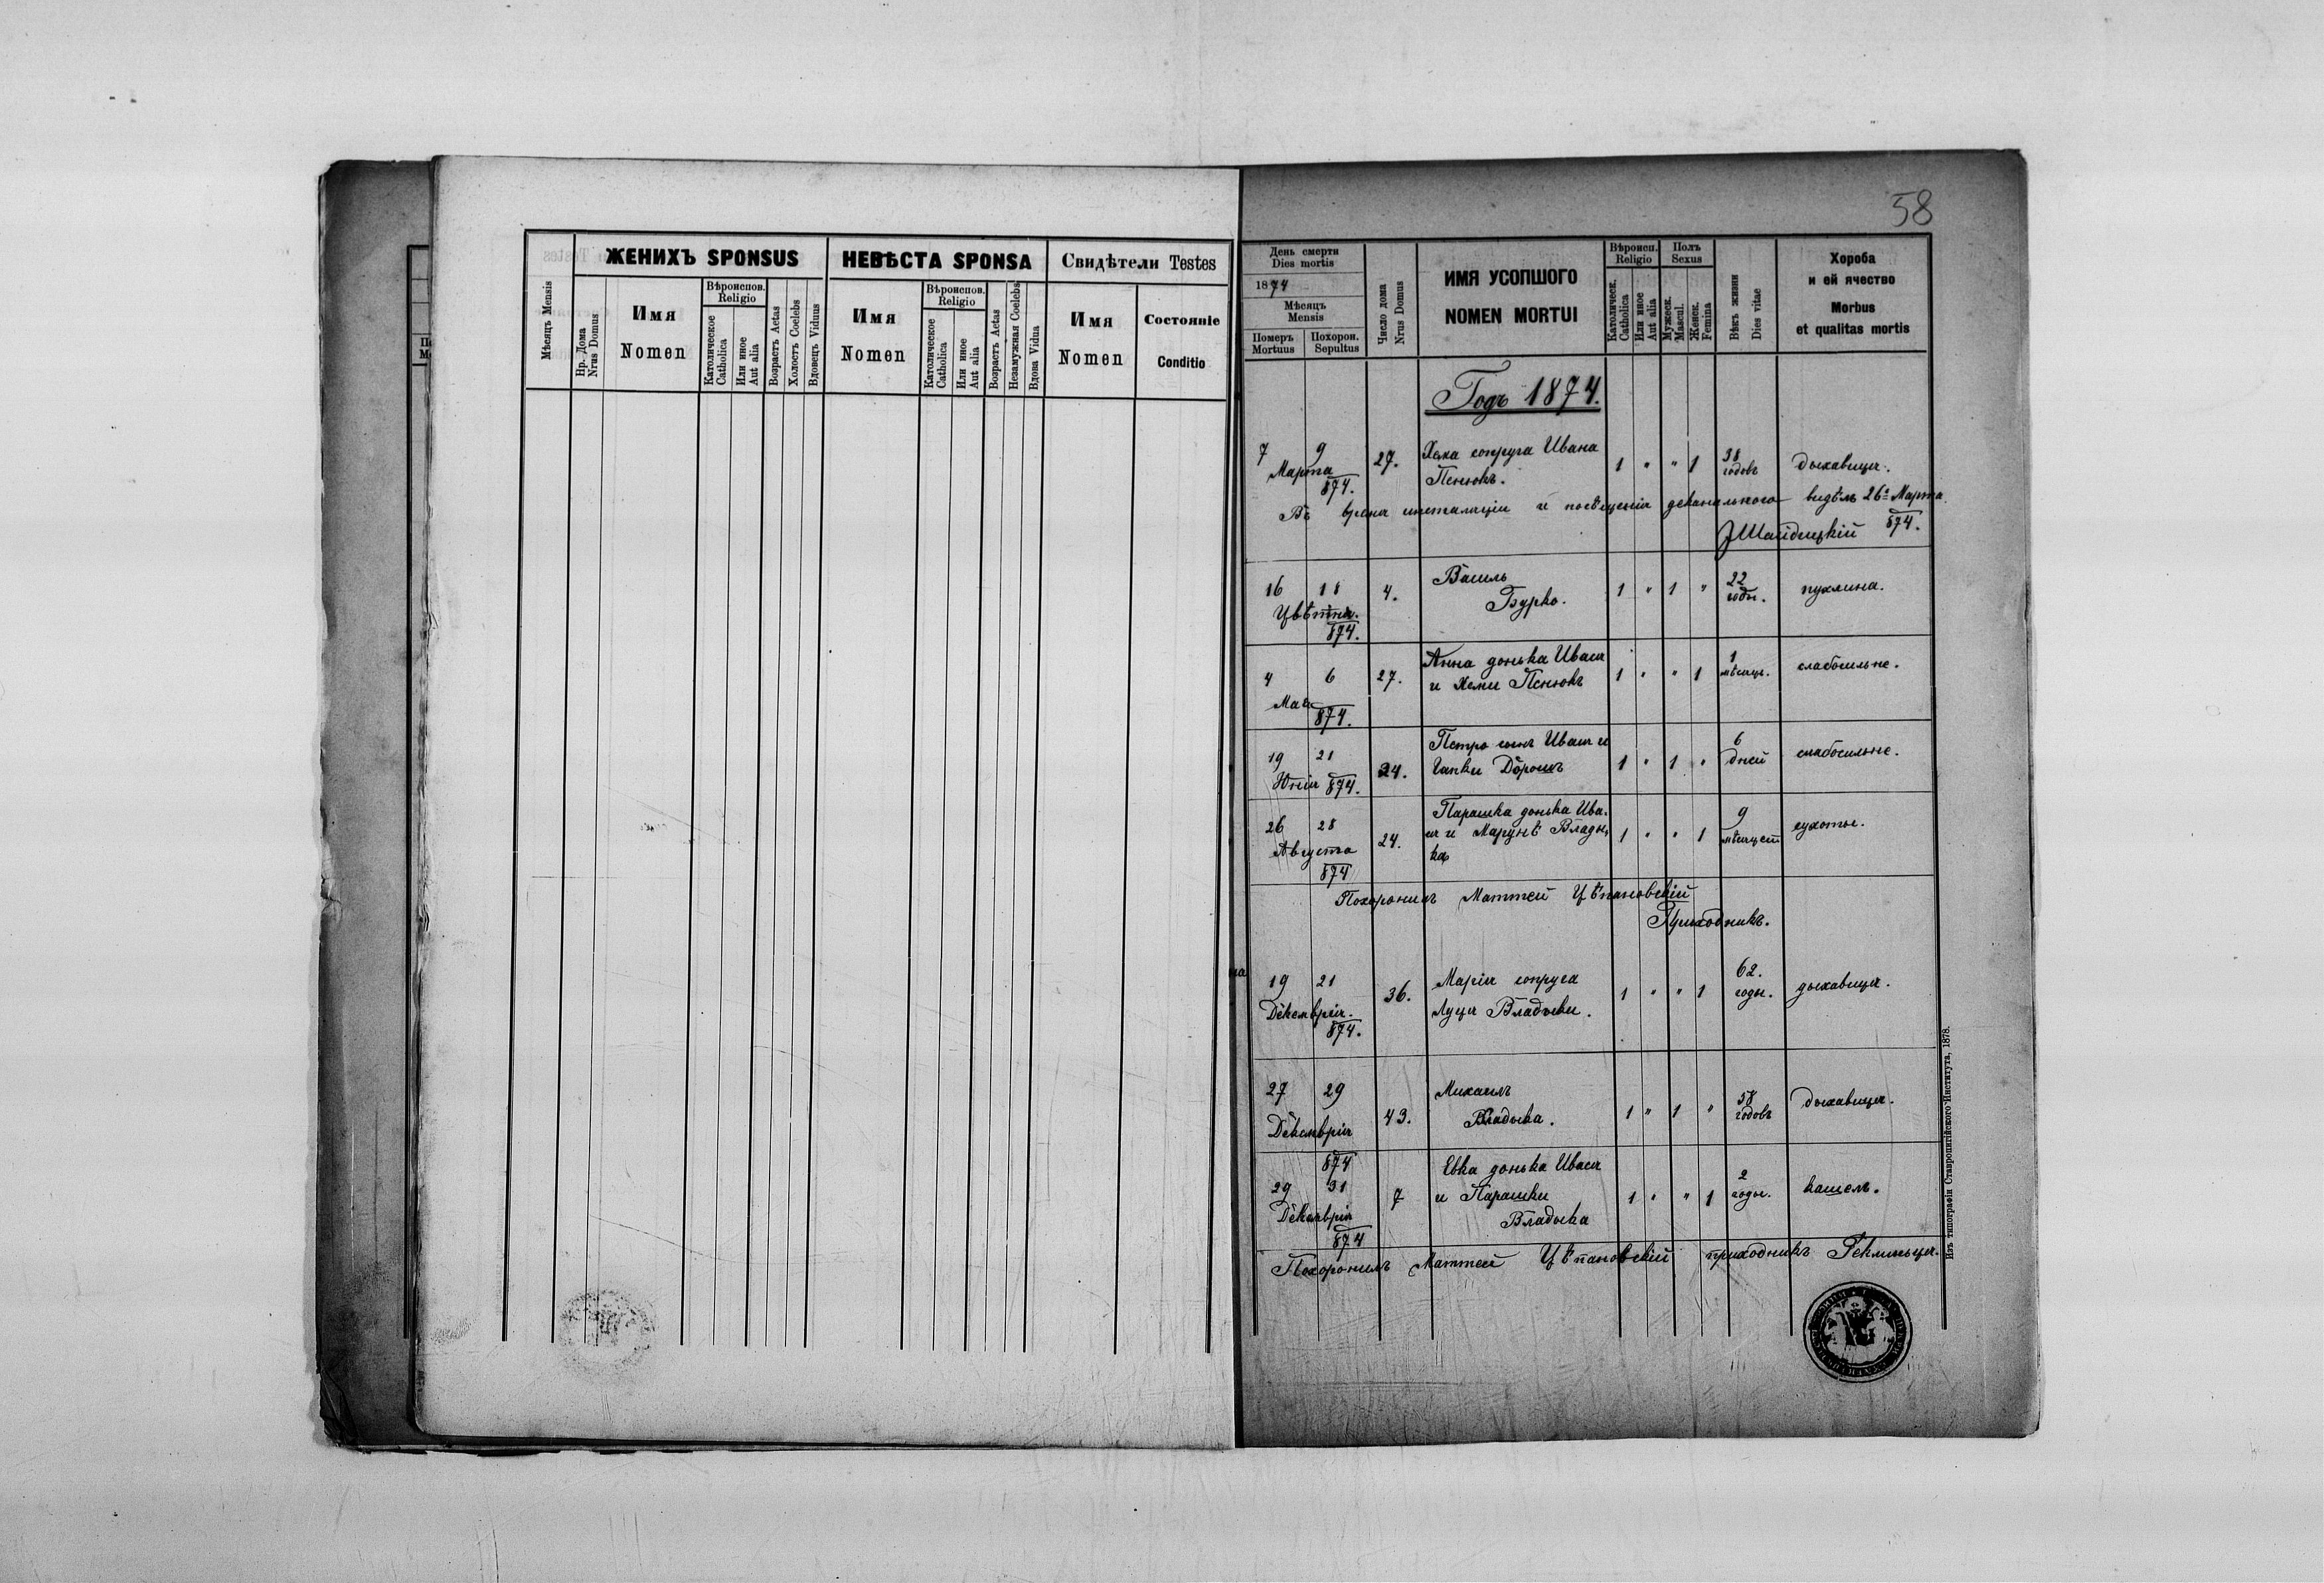 58
ЖЕНИХЪ SPONSUS
НЕВѢСТА SPONSA
Свидѣтели Testes
Мѣсяцъ Mensis
Нр. Дома
Nrus Domus
Имя
Nomen
Вѣроиспов.
Religio
Католическое
Catholica
Или иное
Aut alia
Возрастъ Aetas
Холостъ Coelebs
Вдовецъ Viduus
Имя
Nomen
Вѣроиспов.
Religio
Католическое
Catholica
Или иное
Aut alia
Возрастъ Aetas
Незамужная Coelebs
Вдова Vidua
Имя
Nomen
Состояніе
Conditio
День смерти
Dies mortis
1874
Мѣсяцъ
Mensis
Померъ
Mortuus
Похорон.
Sepultus
Число дома
Nrus Domus
ИМЯ УСОПШОГО
NOMEN MORTUI
Вѣроисп.
Religio
Католическ.
Catholica
Или иное
Aut alia
Полъ
Sexus
Мужеск.
Mascul.
Женск.
Femina
Вѣкъ жизни
Dies vitae
Хороба
и ей ячество
Morbus
et qualitas mortis
Годъ 1874.
7 9 27. супруга Ивана 1 " " 1 38 дыхавиця.
Марта Пенюкъ. годовъ
874.
Въ время инсталяціи и посѣщенія деканального видѣлъ 26го Марта
Шайдицкій 874.
16 18 4. Василь 1 " 1 " 22 пухлина.
Цвѣтня. Бурко. годы.
874.
4 6 27. Анна донька Ивана 1 " " 1 1 слабосильне.
Мая и Пенюкъ мѣсяцъ.
874.
19 21 24. Петро сынъ Ивана и 1 " 1 " 6 слабосильне.
Юнія 874. Ганки Дорошъ дней
26 28 24. Парашка донька Ива- 1 " " 1 9 сухоты.
Августа на и Марунѣ Влады- мѣсяцей
874 ка
Похоронилъ Маттей Цѣпановскій
Приходникъ.
19 21 36. Марія супруга 1 " " 1 62. дыхавиця.
Декемврія. Луця Владыки. годы.
874.
27 29 43. Михаилъ 1 " 1 " 58 дыхавиця.
Декемврія Владыка. годовъ
874
29 31 7 Евка донька Ивана 1 " " 1 2 кашель.
Декемврія и Парашки годы.
874 Владыка
Похоронилъ Маттей Цѣпановскій приходникъ
Изъ типографіи Ставропигійского Института, 1878.